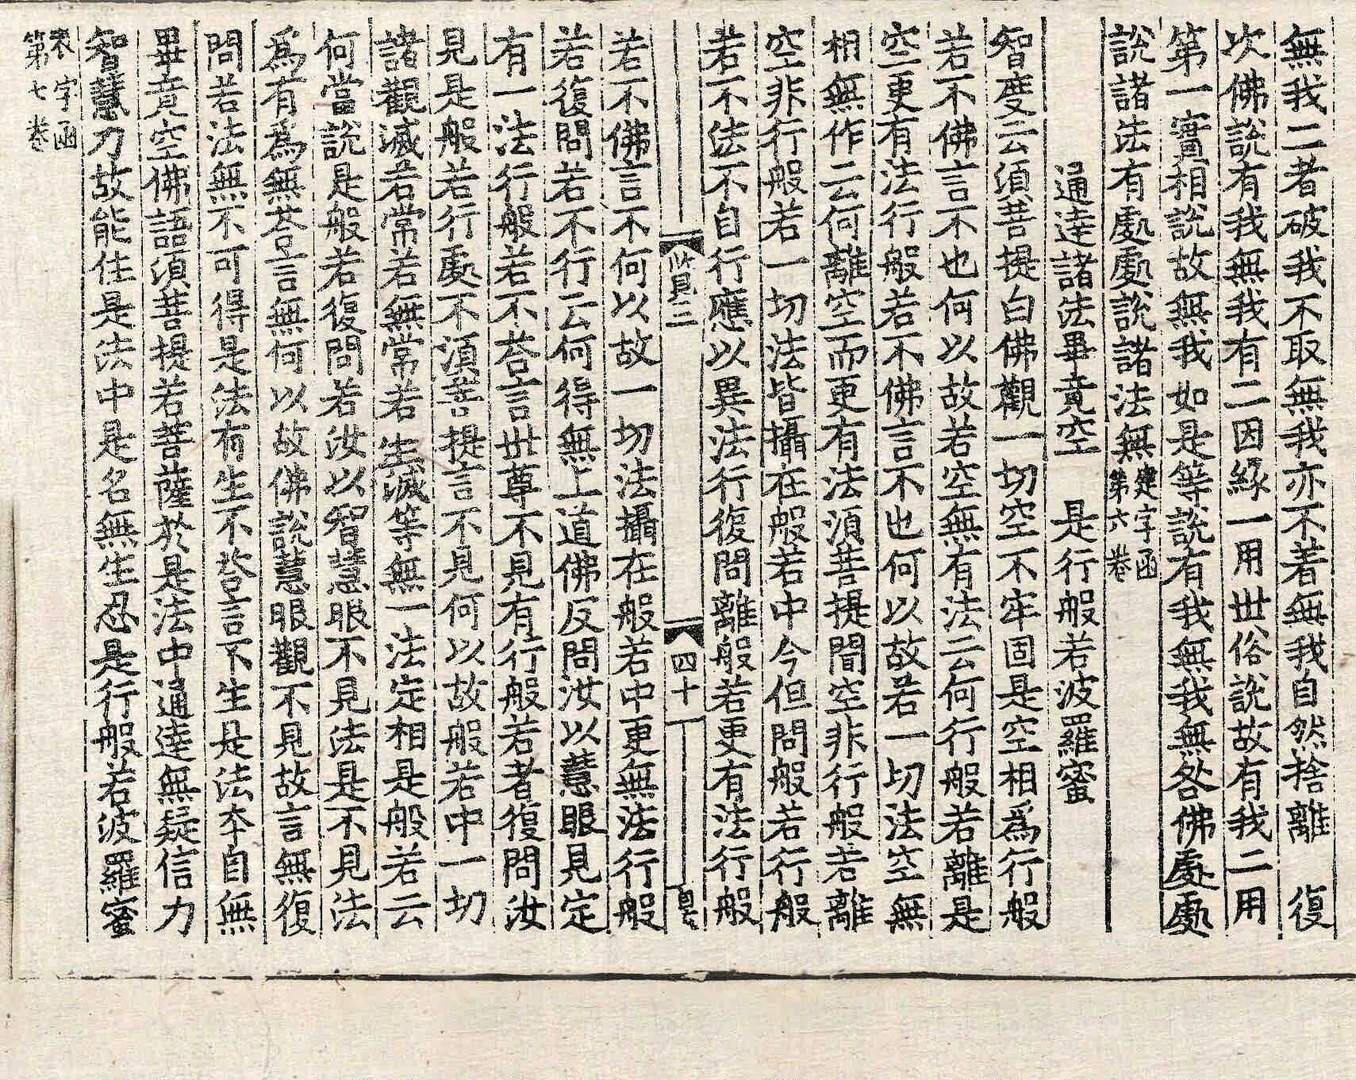 無我二者破我不取無我亦不著無我自然捨離　復
次佛說有我無我有二因緣一用世俗說故有我二用
第一實相說故無我如是等說有我無我無咎佛處處
說諸法有處處說諸法無建字函第六卷
通達諸法畢竟空　是行般若波羅蜜
智度云須菩提白佛觀一切空不牢固是空相爲行般
若不佛言不也何以故若空無有法云何行般若離是
空更有法行般若不佛言不也何以故若一切法空無
相無作云何離空而更有法須菩提聞空非行般若離
空非行般若一切法皆攝在般若中今但問般若行般
若不法不自行應以異法行復問離般若更有法行般
四十
若不佛言不何以故一切法攝在般若中更無法行般
若復問若不行云何得無上道佛反問汝以慧眼見定
有一法行般若不荅言世尊不見有行般若者復問汝
見是般若行處不須菩提言不見何以故般若中一切
諸觀滅若常若無常若生滅等無一法定相是般若云
何當說是般若復問若汝以智慧眼不見法是不見法
爲有爲無荅言無何以故佛說慧眼觀不見故言無復
問若法無不可得是法有生不荅言不生是法本自無
畢竟空佛語須菩提若菩薩於是法中通達無疑信力
智慧力故能住是法中是名無生忍是行般若波羅蜜
表字函
第七卷